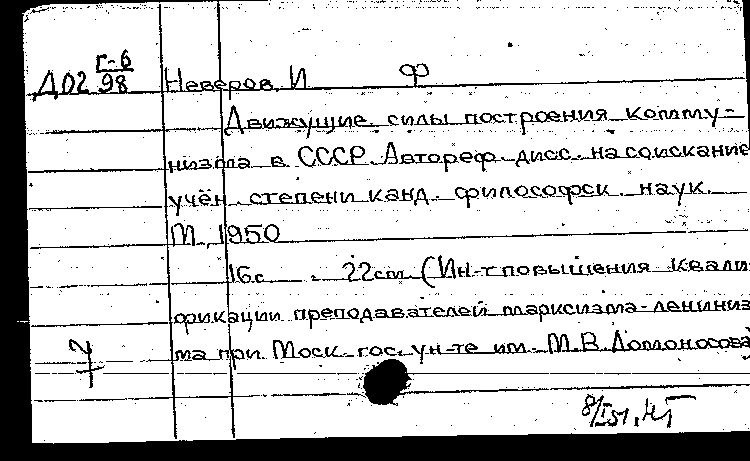 Г-6
Д02 98 Неверов, И Ф
Движущие силы построения комму-
низма в СССР. Автореф. дисс. на соискание
учён. степени канд. философск. наук.
М., 1950
16с . 22см (Ин-т повышения квали-
фикации преподавателей марксизма-лениниз-
ма при Моск. гос. ун-те им. М.В. Ломоносова